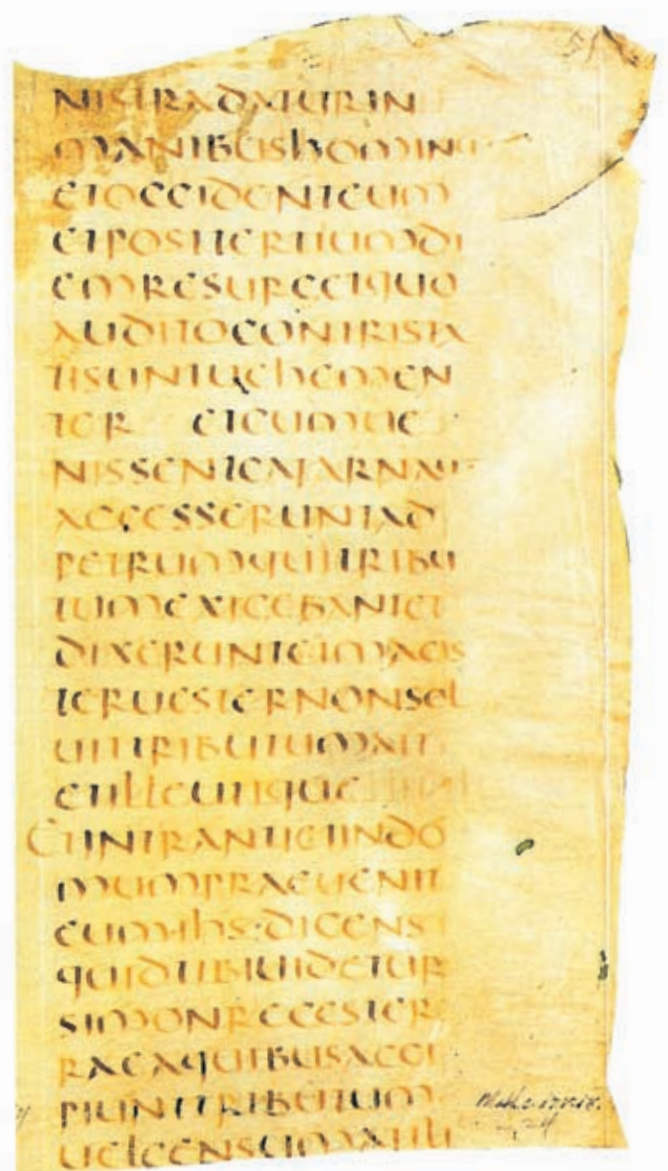 NISTRADATURIN
MANIBUSHOMIN
ETOCCIDENTEUM
ETPOSTTERTIUMDI
EMRESURGETQUO
AUDITOCONTRISTA
TISUNTUEHEMEN
TER ETCUMUE
NISSENTCAFARNAU
ACCESSERUNTAD
PETRUMQUITRIBU
TUMEXIGEBANTET
DIXERUNTEIMAGIS
TERUESTERNONSOL
UITTRIBUTUMAIT
ETILLEUTIQUE
ETINTRANTEINDO
MUMPRAEUENIT
EUMIHS·DICENS
QUIDTIBIUIDETUR
SIMONREGESTER
RAEAQUIBUSACCI
PIUNTTRIBUTUM
UELCENSUMAFILI